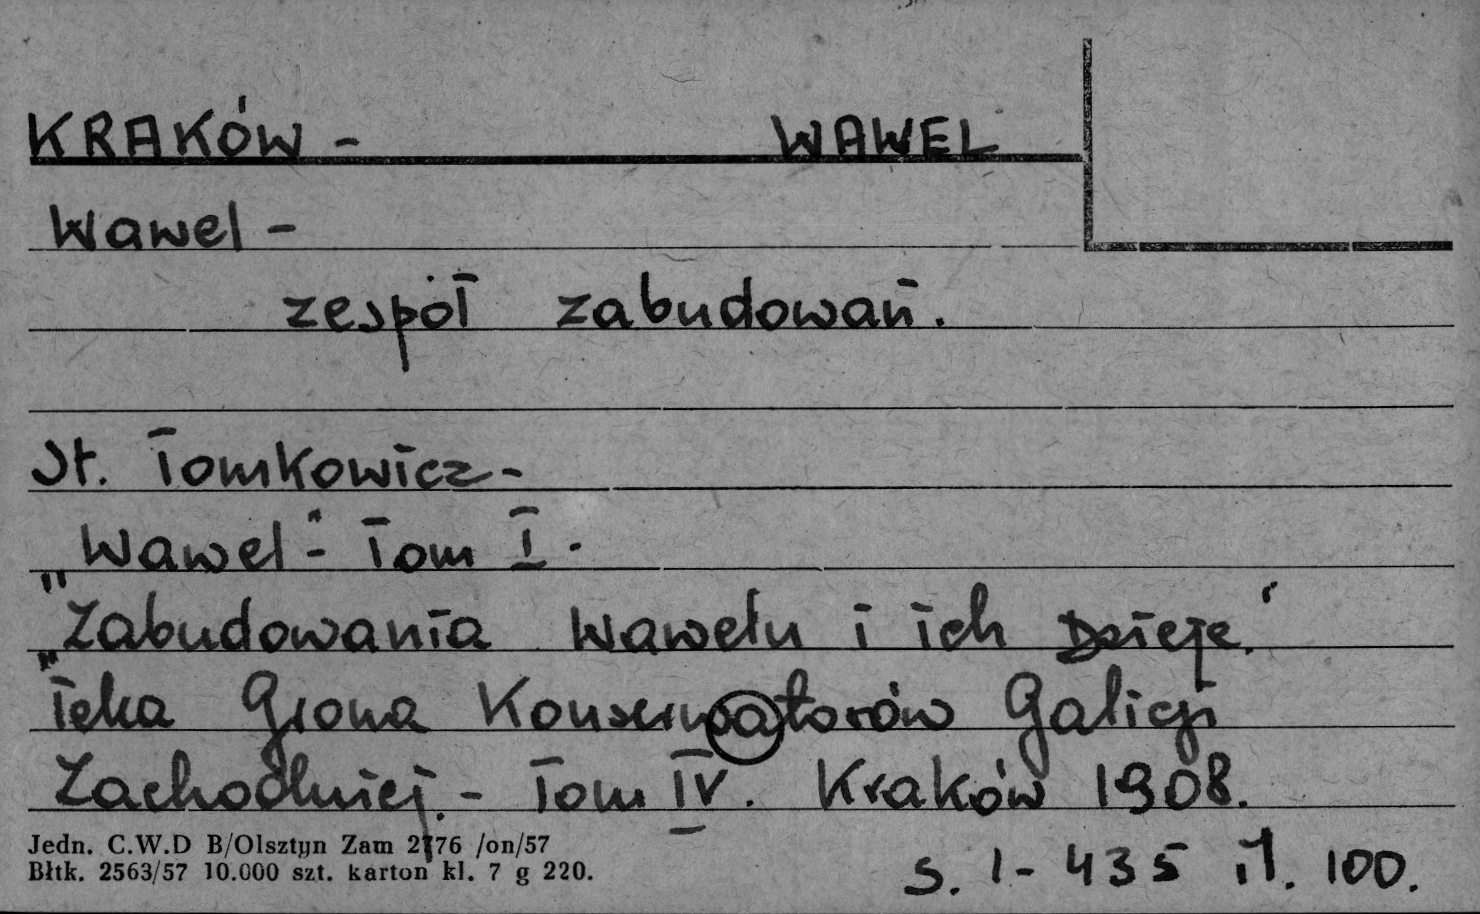 KRAKÓW - WAWEL
Wawel -
zespół zabudowań.
St. Tomkowicz -
Wawel" - Tom I.
"Zabudowania Wawelu i ich Dzieje."
"Teka Grona Konserwatorów Galicji
Zachodniej. - Tom IV. Kraków 1908.
Jedn. C.W.D B/Olsztyn Zam 2776 /on/57
Błtk. 2563/57 10.000 szt. karton kl. 7 g 220.
s. 1 - 435 il. 100.